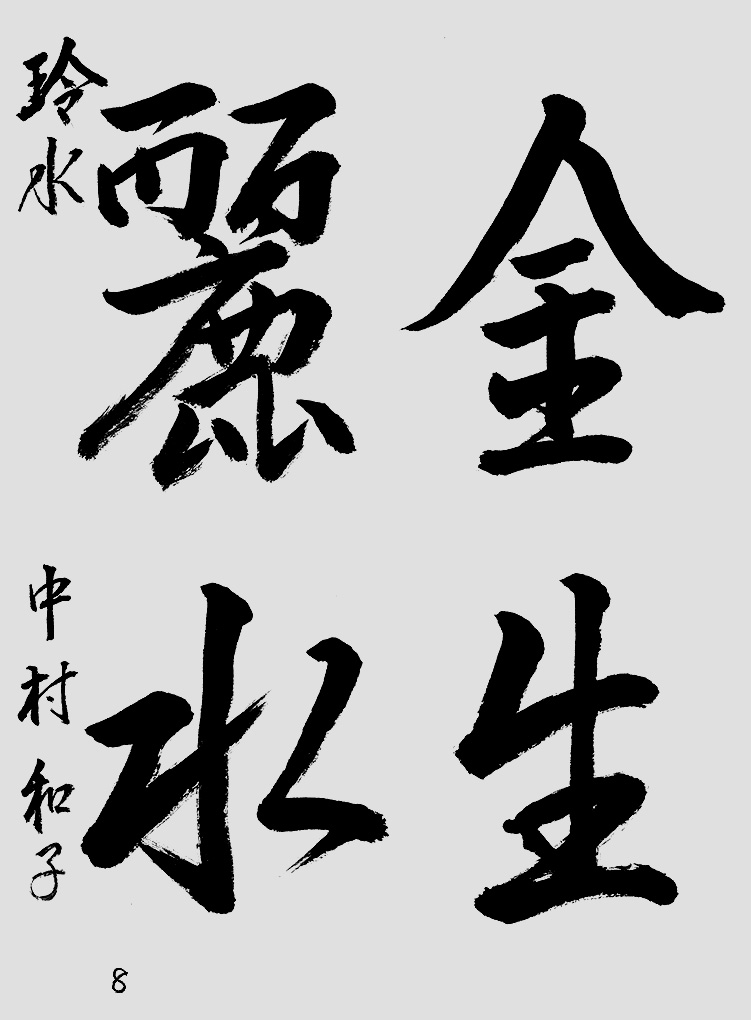 金生
麗水
玲水
中村和子
8